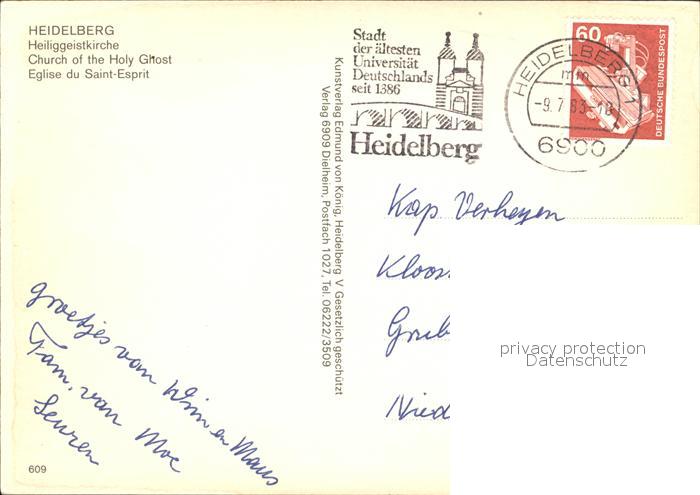 HEIDELBERG
Heiliggeistkirche
Church of the Holy Ghost
Eglise du Saint-Esprit
Stadt
der ältesten
Universität
Deutschlands
seit 1386
Heidelberg
HEIDELBERG 1
mm
-9.7.83-18
6900
60
DEUTSCHE BUNDESPOST
Kunstverlag Edmund von König, Heidelberg V Gesetzlich geschützt
Verlag 6909 Dielheim, Postfach 1027, Tel. 06222/3509
Kap Verheyen
Kloos
Grub
Nied
privacy protection
Datenschutz
groetjes van Wim en Maus
Fam. van Moe
Leuren
609